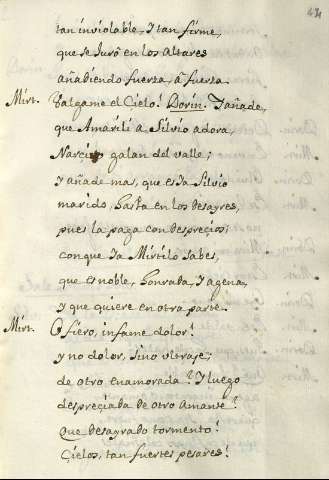 tan inviolable, y tan firme,
que se Juró en los Altares
añadiendo fuerza, a fuerza.
Mirt. Valgame el Cielo! Dorin. Y añade,
que Amarili a Silvio adora,
Narciso galan del valle;
y añade mas, que es ya Silvio
marido, hasta en los desayres,
pues la paga con desprecios;
conque ya Mirtilo sabes,
que es noble, honrada, y agena,
y que quiere en otra parte.
Mirt. O fiero, infame dolor!
y no dolor, sino ultraje;
de otro enamorada? Y luego
despreçiada de otro Amante?
Que desagrado tormento!
Çielos, tan fuertes pesares!